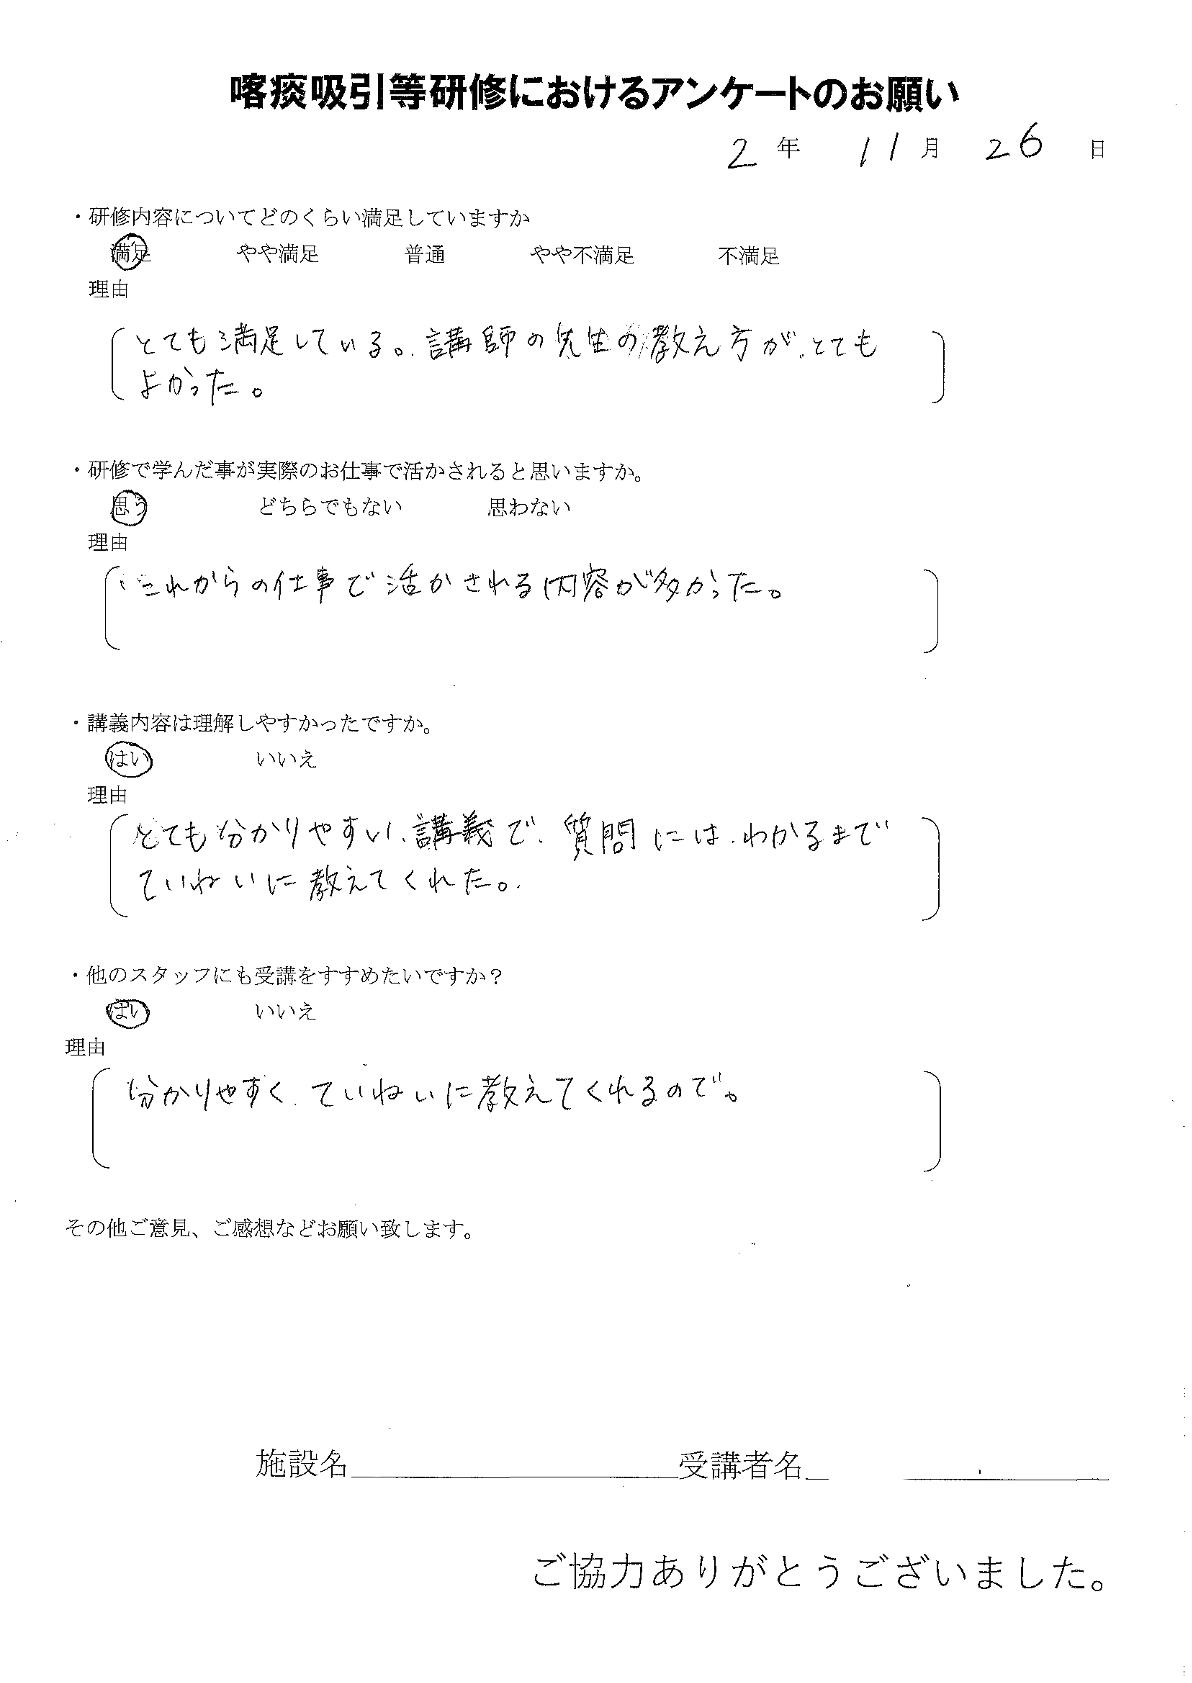 喀痰吸引等研修におけるアンケートのお願い
2年 11月 26日
・研修内容についてどのくらい満足していますか
満足 やや満足 普通 やや不満足 不満足
理由
とても満足している。講師の先生の教え方が、とても
よかった。
・研修で学んだ事が実際のお仕事で活かされると思いますか。
思う どちらでもない 思わない
理由
これからの仕事で活かされる内容が多かった。
・講義内容は理解しやすかったですか。
はい いいえ
理由
とても分かりやすい、講義で、質問には、わかるまで
ていねいに教えてくれた。
・他のスタッフにも受講をすすめたいですか？
はい いいえ
理由
分かりやすく、ていねいに教えてくれるので。
その他ご意見、ご感想などお願い致します。
施設名 受講者名
ご協力ありがとうございました。